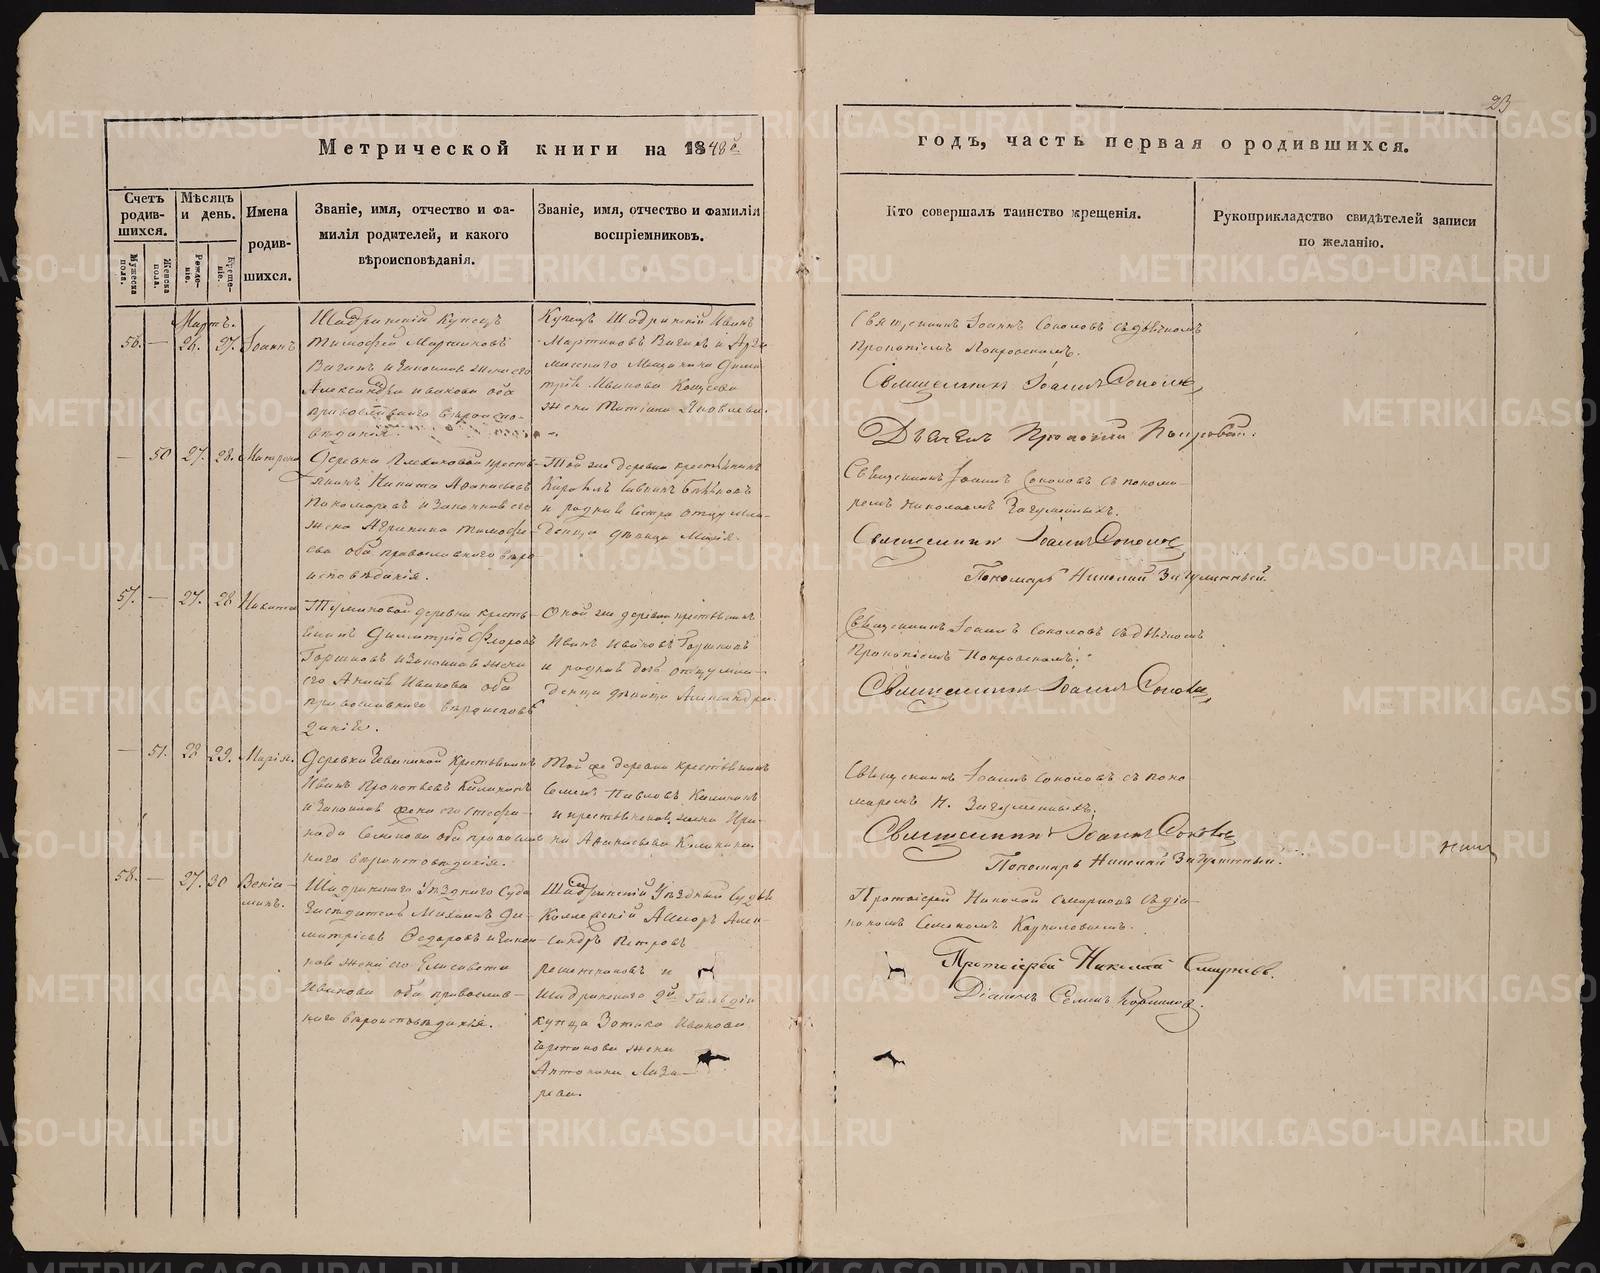 23
Метрической книги на 1848й
годъ, часть первая о родившихся.
Счетъ родив- шихся.
Мужеска пола.
Женска пола.
Мѣсяцъ и день.
Рожде- ніе.
Креще- ніе.
Имена родив- шихся.
Званіе, имя, отчество и фа-
милія родителей, и какого
вѣроисповѣданія.
Званіе, имя, отчество и фамилія
воспріемниковъ.
Кто совершалъ таинство крещенія.
Рукоприкладство свидѣтелей записи
по желанію.
Мартъ.
56. — 24. 27. Іоаннъ
Шадринскій Купецъ
Тимофей Мартиновъ
Вагинъ и Законная жена его
Александра Иванова оба
православнаго вѣроиспо-
вѣданія.
Купецъ Шадринскій Иванъ
Мартиновъ Вагинъ и
Мещанина Дими-
трія Иванова
жена Татіана Яковлева.
Священникъ Іоаннъ Соколовъ съ дьячкомъ
Прокопіемъ Покровскимъ.
Священникъ Іоаннъ Соколовъ
Дьячекъ Прокопій Покровскій.
— 50 27. 28. Матрона
Деревни кресть-
янинъ Никита Афанасьевъ
Пономаревъ и Законная его
жена Агрипина Тимофе-
ева оба православнаго вѣро
исповѣданія.
Той же деревни крестьянинъ
и родная сестра отцу мла-
денца дѣвица Марія.
Священникъ Іоаннъ Соколовъ съ понома-
ремъ Николаемъ Загуменныхъ.
Священникъ Іоаннъ Соколовъ
Пономарь Николай Загуменный.
57. — 27. 28 Никита
деревни кресть-
янинъ Димитрій Флоровъ
Горшковъ и Законная жена
его Анисія Иванова оба
православнаго вѣроисповѣ
данія.
Оной же деревни крестьянинъ
Иванъ Ивановъ Горшковъ
и родная дочь отцу мла-
денца дѣвица Александра.
Священникъ Іоаннъ Соколовъ съ дьячкомъ
Прокопіемъ Покровскимъ.
Священникъ Іоаннъ Соколовъ
— 51. 28 29. Марія.
Деревни крестьянинъ
Иванъ Прокопьевъ Калининъ
и Законная жена его Стефа-
нида Семенова оба православ
наго вѣроисповѣданія.
Той же деревни крестьянинъ
Семенъ Павловъ Калининъ
и крестьянская жена Ири-
на Афанасьева Калинина.
Священникъ Іоаннъ Соколовъ съ поно
маремъ Н. Загуменныхъ.
Священникъ Іоаннъ Соколовъ
Пономарь Николай Загуменный.
58. — 27. 30 Веніа-
минъ.
Шадринскаго Уѣзднаго Суда
Засѣдатель Михаилъ Ди-
митріевъ Федоровъ и Закон
ная жена его Елисавета
Иванова оба православ-
наго вѣроисповѣданія.
Шадринскій Уѣздный Судья
Коллежскій Асесоръ Алек-
сандръ Петровъ
Решетниковъ и
Шадринскаго 2й Гильдіи
купца Зотика Иванова
жена
Антонина Лаза-
рева.
Протоіерей Николай Смирновъ съ діа-
кономъ Семеномъ Карпиловымъ.
Протоіерей Николай Смирновъ.
Діаконъ Семенъ Карпиловъ.
METRIKI.GASO-URAL.RU